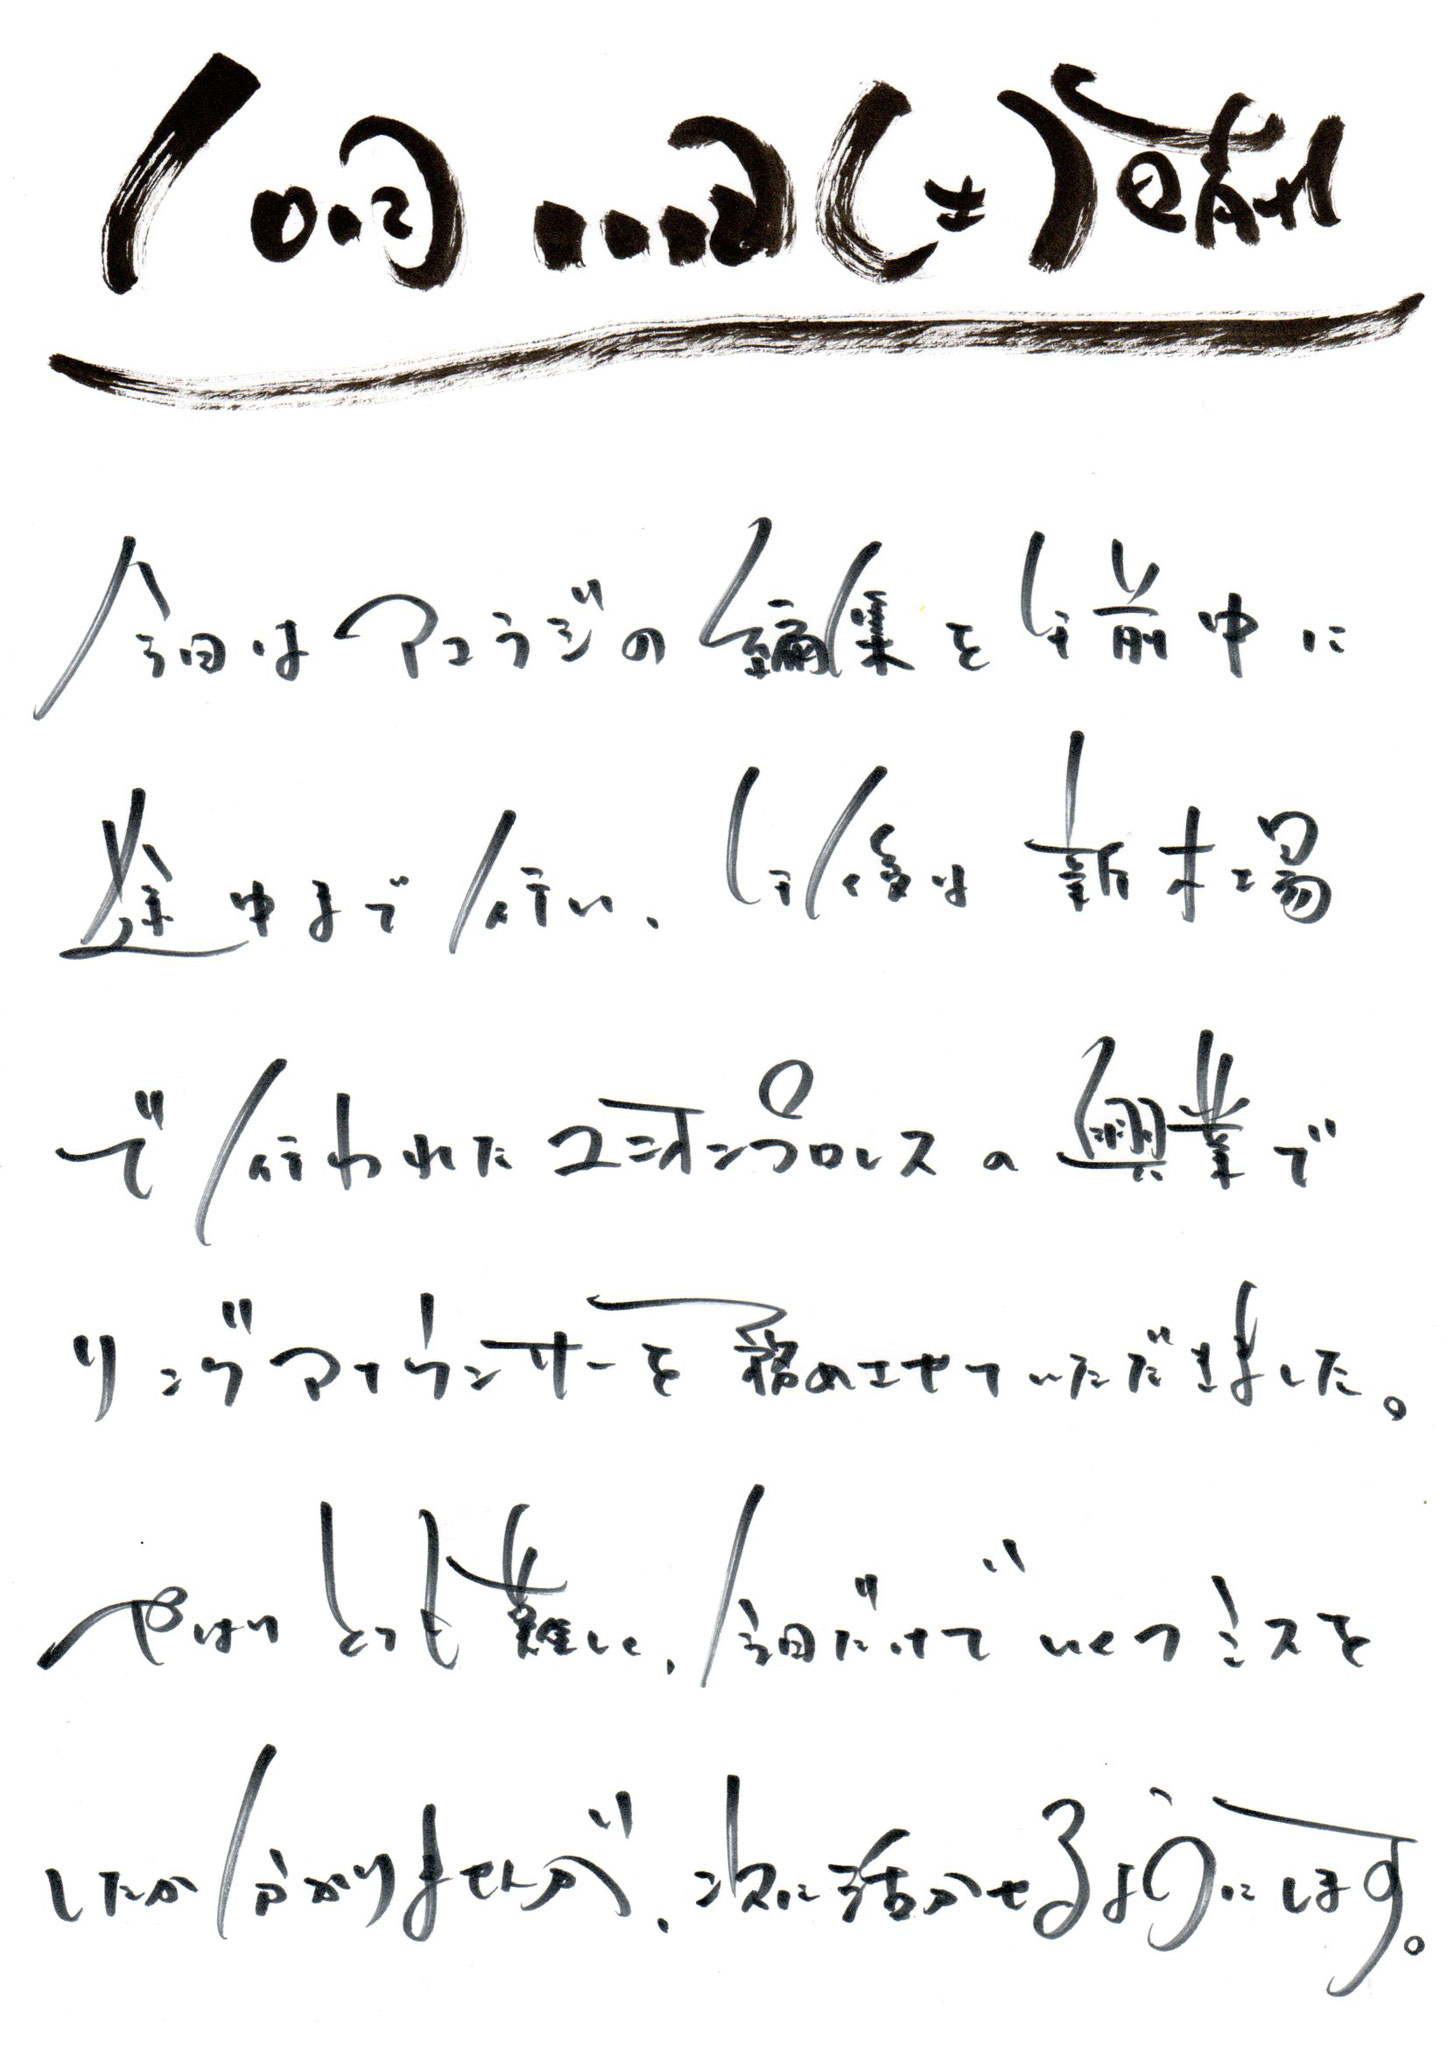 (土)晴れ
今日は の編集を午前中に
途中まで行い、午後は新木場
で行われたユニオンプロレスの興業で
リングアナウンサーを務めさせていただきました。
やはりとても難しく、今日だけでいくつミスを
したか分かりませんが、次に活かせるようにします。